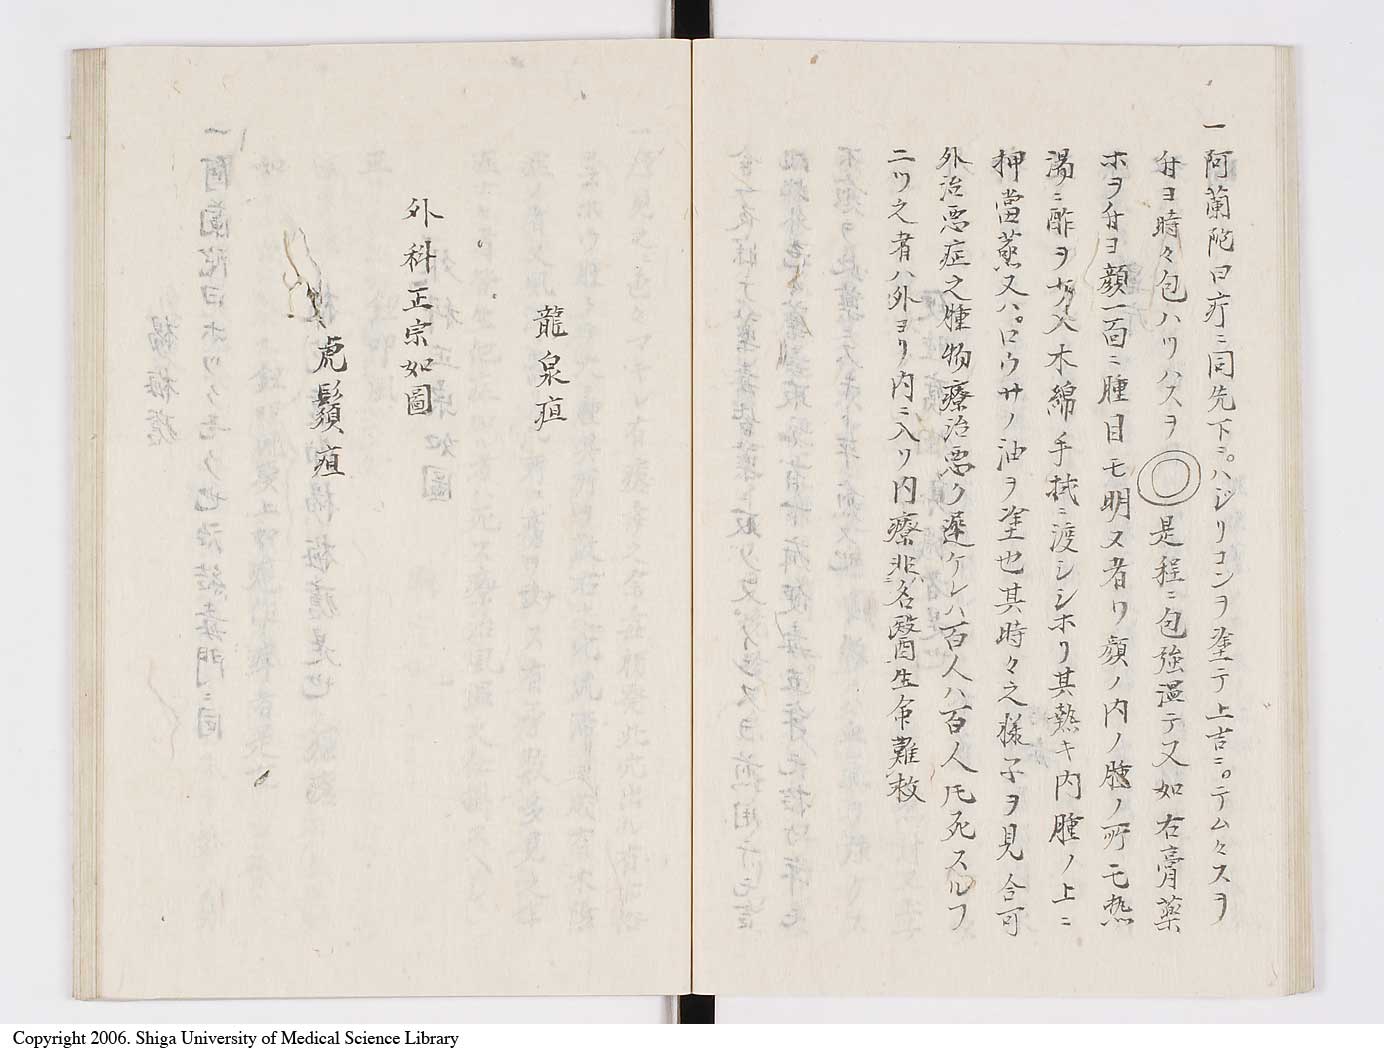 一阿蘭陀曰疔ニ同先下ニ。ハジリコンヲ塗テ上吉ニ。テムクスヲ
付ヨ時々包ハツハスヲ◎是程ニ包強温テ又如右膏薬
ホヲ付ヨ顔一百ニ腫目モ明ヌ者ワ顔ノ内ノ腫ノ所モ熱
湯ニ酢ヲ入木綿手拭ニ渡シシホリ其熱キ内腫ノ上ニ
押當蒸又ハ。ロウサノ油ヲ塗也其時々之様子ヲ見合可
外治悪症之腫物療治悪ク遅ケレハ百人ハ百人凡死スルフ
二ツ之者ハ外ヨリ内ニ入リ内療非名醫生命難救
龍泉疽
外科正宗如圖
虎鬚疽
Copyright 2006. Shiga University of Medical Science Library